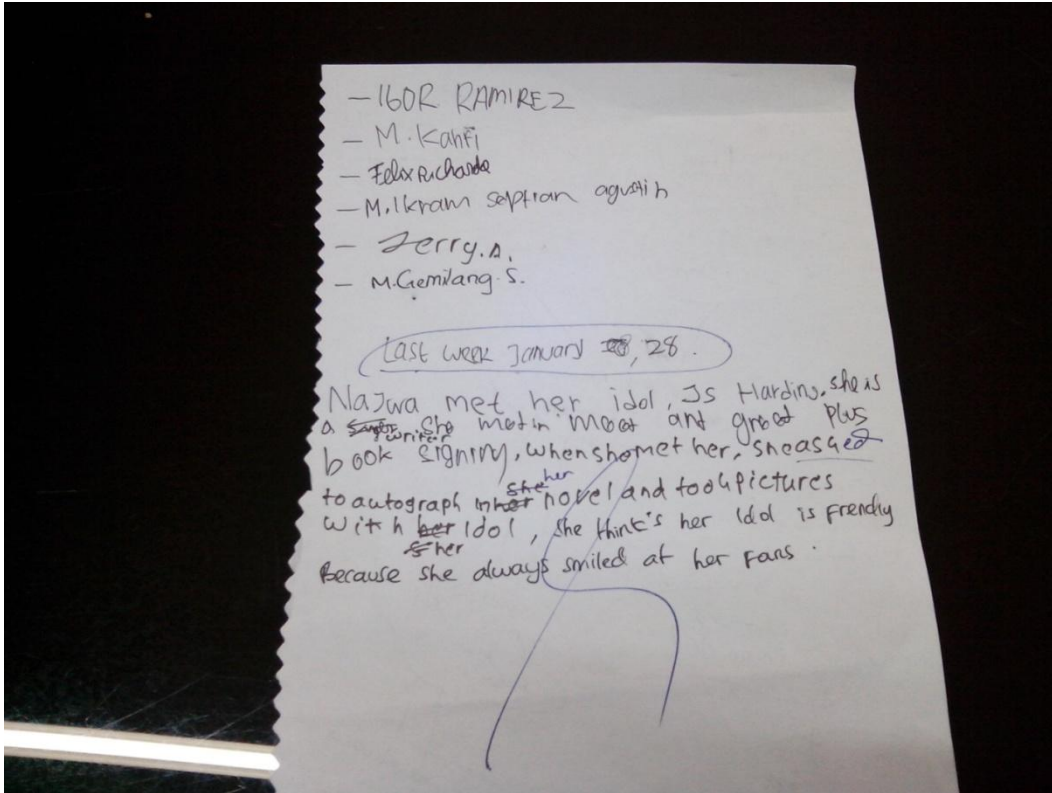 - IGOR RAMIREZ
- M. Kahfi
- Felix Richardo
- M. Ikram septian agustin
- Jerry. A.
- M. Gemilang. S.
Last week January 28.
Najwa met her idol, Js Harding. she is
a writer she met in meet and greet plus
book signing, when she met her, she asked
to autograph in her novel and took pictures
with her idol, she think's her idol is frendly
Because she always smiled at her fans.